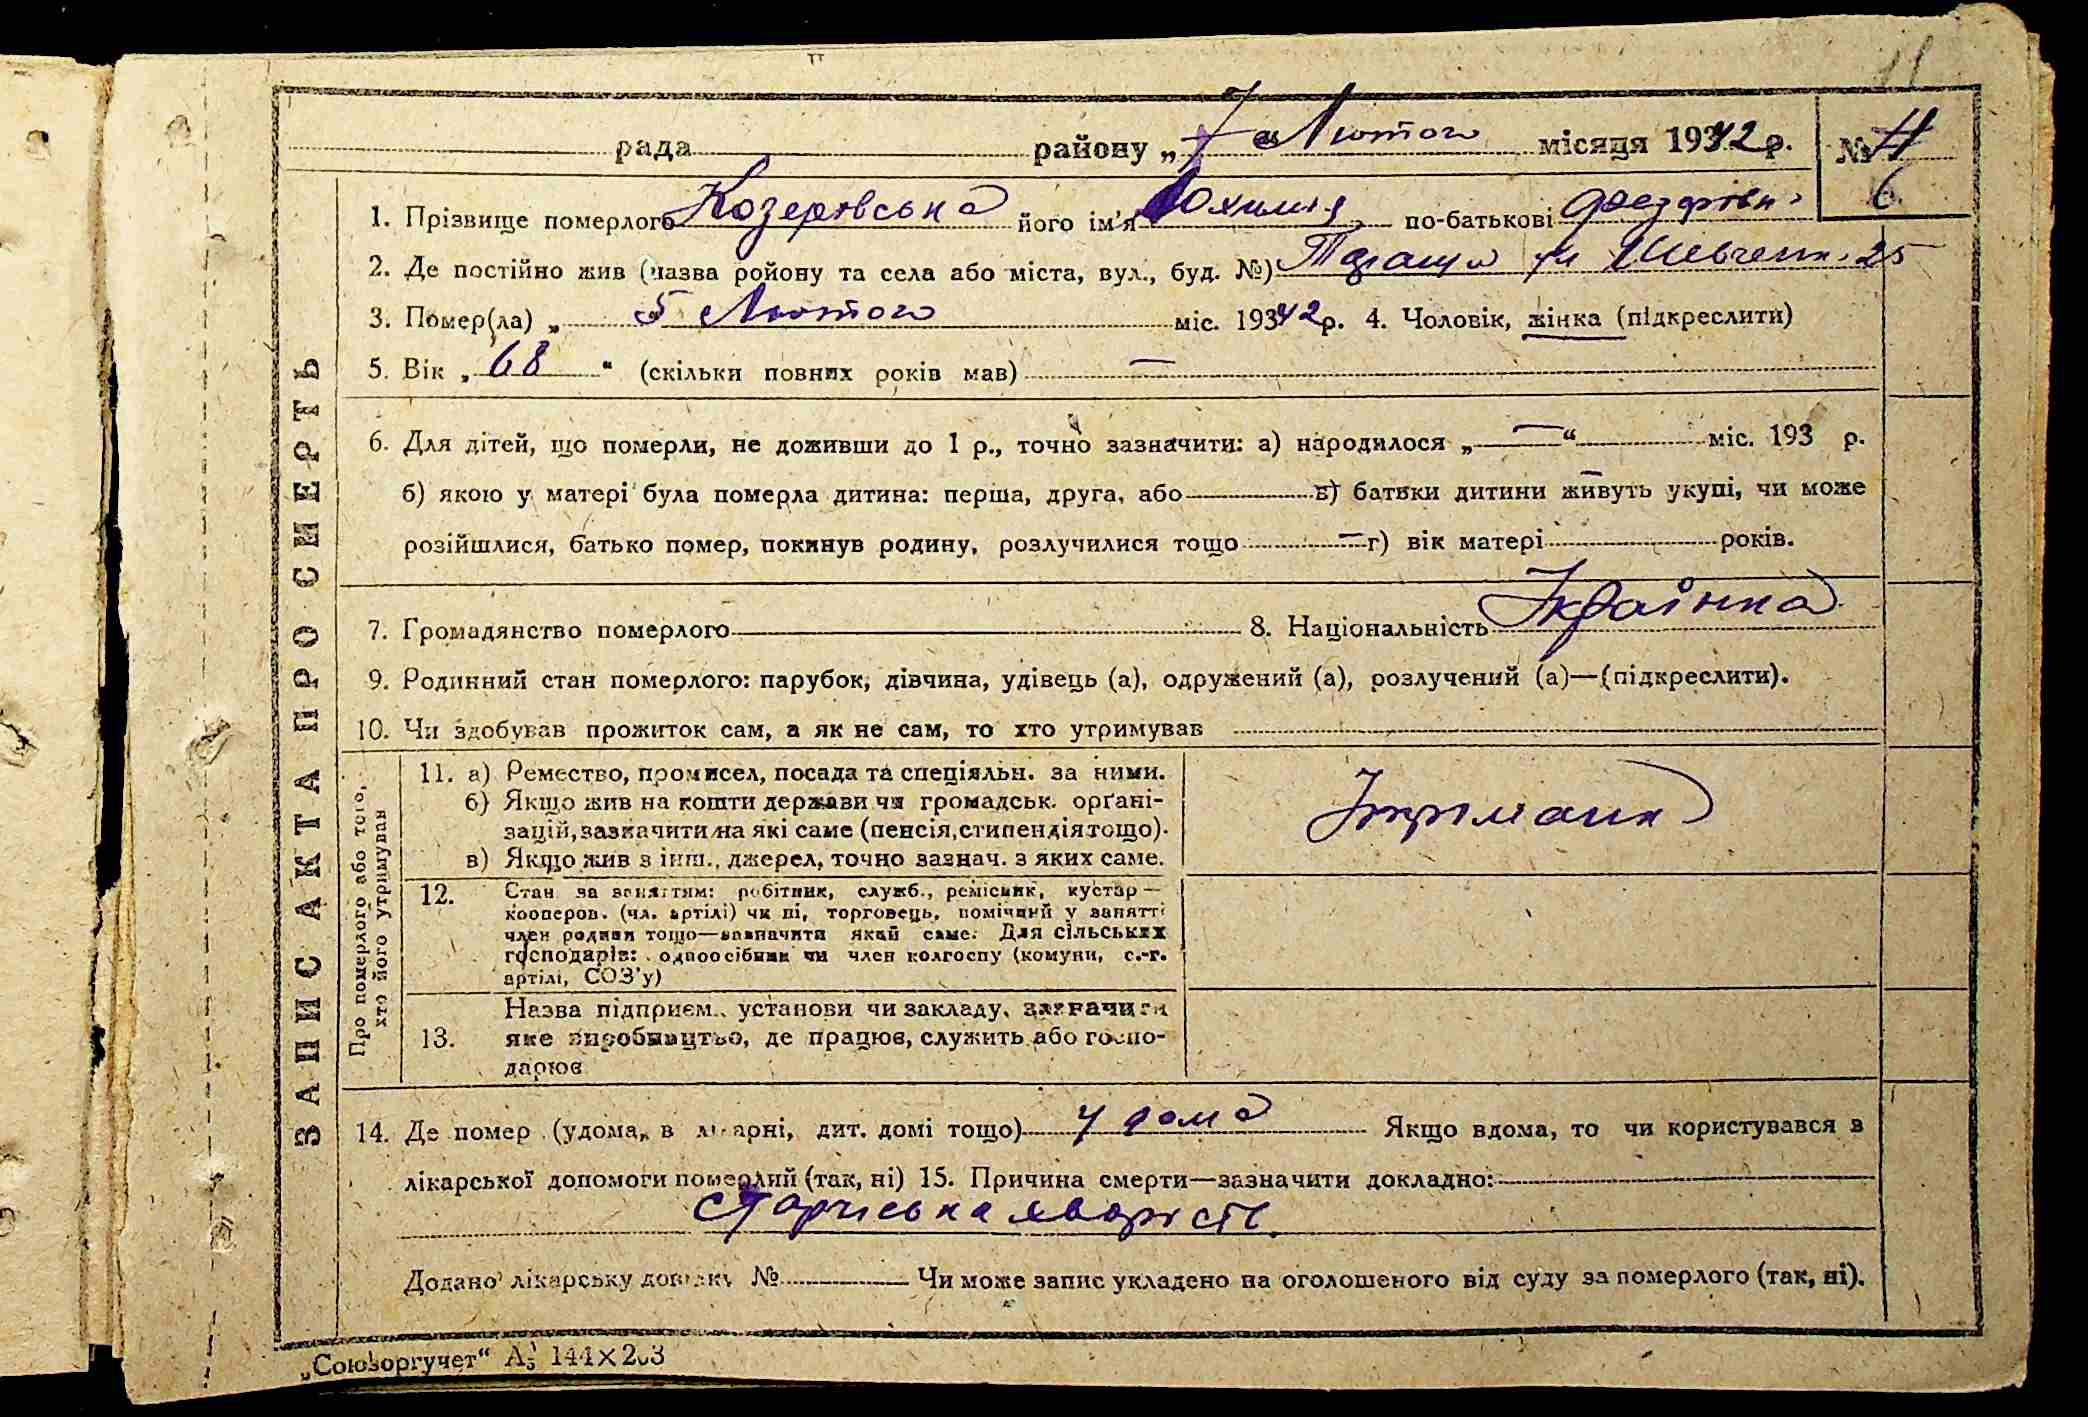 11
рада району „7“ Лютого місяця 1942 р. № 11
6
1. Прізвище померлого Козеровська його ім'я Юхимія по-батькові
2. Де постійно жив (назва ройону та села або міста, вул., буд. №) Тараща ул Шевченк. 25
3. Помер(ла) „5“ Лютого міс. 1942 р. 4. Чоловік, жінка (підкреслити)
5. Вік „68“ (скільки повних років мав) —
6. Для дітей, що померли, не доживши до 1 р., точно зазначити: а) народилося „—“ міс. 193 р.
б) якою у матері була померла дитина: перша, друга, або — в) батьки дитини живуть укупі, чи може
розійшлися, батько помер, покинув родину, розлучилися тощо — г) вік матері років.
7. Громадянство померлого 8. Національність Українка
9. Родинний стан померлого: парубок, дівчина, удівець (а), одружений (а), розлучений (а)—(підкреслити).
10. Чи здобував прожиток сам, а як не сам, то хто утримував
11. а) Ремество, промисел, посада та спеціяльн. за ними.
б) Якщо жив на кошти держави чи громадськ. орґані-
зацій, зазначити на які саме (пенсія, стипендія тощо).
в) Якщо жив з інш., джерел, точно зазнач. з яких саме.
Утриманка
12. Стан за заняттям: робітник, служб., ремісник, кустар—
кооперов. (чл. артілі) чи ні, торговець, помічний у занятті
член родини тощо—зазначити який саме. Для сільських
господарів: одноосібник чи член колгоспу (комуни, с.-г.
артілі, СОЗ'у)
13. Назва підприєм., установи чи закладу, зазначити
яке виробництво, де працює, служить або госпо-
дарює
14. Де помер (удома, в лікарні, дит. домі тощо) у дома Якщо вдома, то чи користувався в
лікарської допомоги померлий (так, ні) 15. Причина смерти—зазначити докладно:
старчіська хворість.
Додано лікарську довідку № Чи може запис укладено на оголошеного від суду за померлого (так, ні).
ЗАПИС АКТА ПРО СМЕРТЬ
Про померлого або того,
хто його утримував
„Союзоргучет“ А5 144×203